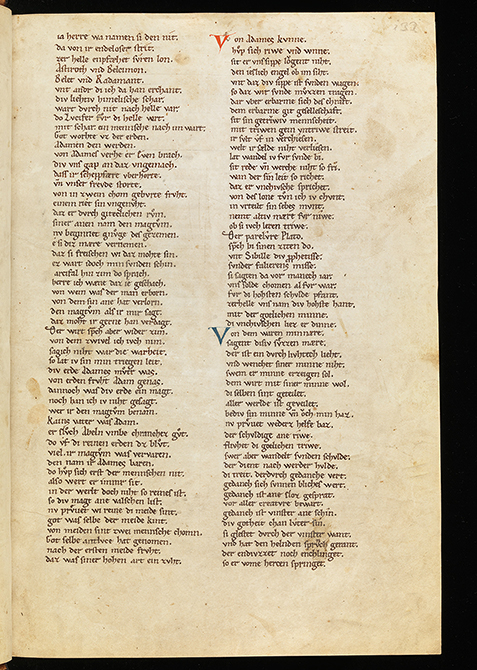 132
ia herre wa namen si den nit.
da von ir endeloser strit.
zer helle enpfæhet suren lon.
Astiroth vnd Belcimon.
Belet vnd Radamant.
vnt ander di ich da han erchant.
div liehtiv himelische schar.
wart dvrch nit nach helle var.
do Lvcifer fvr di helle vert.
mit schar. ein mennsche nach im wart.
got worhte vz der erden.
Adamen den werden.
von Adames verhe er Even brach.
div vns gap an daz vngemach.
daz ir schepfære vberhorte.
vnt vnser frevde storte.
von in zwein chom gebvrte frvht.
einem riet sin vngenvht.
daz er dvrch giteclichen rvm.
siner anen nam den magtvm.
nv beginnet gnvge des gezemen.
e si diz mære vernemen.
daz si freischen wi daz mohte sin.
er wart idoch mit svnden schin.
arcifal hin zim do sprach.
herre ich wæne daz ie geschach.
von wem was der man erborn.
von dem sin ane hat verlorn.
den magtvm als ir mir sagt.
daz moht ir gerne han verdagt.
Der wirt sprach aber wider zim.
von dem zwivel ich ivch nim.
sagich niht war die warheit.
so lat iv sin min triegen leit.
div erde Adames mvter was.
von erden frvht Adam genas.
dannoch was div erde ein magt.
noch han ich iv niht gesagt.
wer ir den magtvm benam.
Kains vater was Adam.
er slvch Abeln vmbe chranchez gvt.
do vf di reinen erden dz blvt.
viel. ir magtvm was vervaren.
den nam ir Adames baren.
do hvp sich erst der menschen nit.
also wert er immer sit.
in der werlt doch niht so reines ist.
so div magt ane valschen list.
nv prvvet wi reine di meide sint.
got was selbe der meide kint.
von meiden sint zwei mennische chomen.
Got selbe antlvtze hat genomen.
nach der ersten meide frvht.
daz was siner hohen art ein zvht.
Von Adames kvnne.
hvp sich rivwe vnd wnne.
sit er vns sippe lovgent niht.
den ieslich engel ob im siht.
vnt daz div sippe ist svnden wagen.
so daz wir svnde mvzzen tragen.
dar vber erbarme sich des chraft.
dem erbarme git geselleschaft.
sit sin getriwiv mennscheit.
mit triwen gein vntriwe streit.
ir svlt vf in verchiesen.
welt ir selde niht verliesen.
lat wandel iv fvr svnde bi.
sit rede vnt werche niht so fri.
wan der sin leit so richet.
daz er vnchivsche sprichet.
von des lone tvn ich iv chvnt.
in vrteilt sin selbes mvnt.
nemt altiv mære fvr niwe.
ob si ivch leren triwe.
Der parelvre Plato.
sprach bi sinen ziten do.
vnt Sibille div prophetisse.
svnder falierens misse.
si sagten da vor manech iar.
vns solde chomen al fvr war.
fvr di hohsten schvlde pfant.
zerhelle vns nam div hohste hant.
mit der gotelichen minne.
di vnchivschen liez er dinne.
Von dem waren minnære.
sagent disiv svzzen mære.
der ist ein dvrch livhtech lieht.
vnd wenchet siner minne niht.
swem er minne erzeigen sol.
dem wirt mit siner minne wol.
di selben sint geteilet.
aller werlde ist geveilet.
bediv sin minne vnt ovch sin haz.
nv prvvet weders helfe baz.
der schvldige ane riwe.
flivhet di gotelichen triwe.
swer aber wandelt svnden schvlde.
der dienet nach werder hvlde.
di treit. der dvrch gedanche vert.
gedanch sich svnnen blickes wert.
gedanch ist ane sloz gespart.
vor aller creatvre bewart.
gedanch ist vinster ane schin.
div gotheit chan lvter sin.
si glestet dvrch der vinster want.
vnd hat den helnden sprvnch gerant.
der endivzzet noch enchlinget.
so er vome herzen springet.